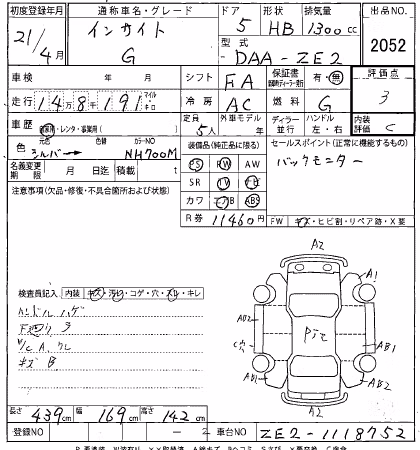 初度登録年月 通称車名・グレード ドア 形状 排気量 出品NO.
21/4月 インサイト G 5 HB 1300cc 2052
型式 DAA-ZE2
車検 年 月 シフト FA 保証書 有・無 評価点
走行 14万8千191 マイル キロ 冷房 AC 燃料 G 3
車歴 自家用・レンタ・事業用( ) 定員 5人 外車モデル 年 ディーラー 並行 ハンドル 左・右 内装評価 C
色 元色 シルバー 色替 カラーNO NH700M 装備品(純正品に限る) セールスポイント(正常に機能するもの)
名義変更期限 月 日迄 積載 t PS PW AW バックモニター
注意事項(欠品・修復・不具合箇所および状態) SR TV ナビ
カワ エアB ABS
R券 11460円 FW キズ・ヒビ割・リペア跡・X要
A2
A1
検査員記入 内装 キズ・汚れ・コゲ・穴・スレ・キレ
ハンドルハゲ
下廻りサ
キズB
AB1
AB2
A2
長さ 439cm 幅 169cm 高さ 142cm
登録NO - 2 車台NO ZE2-1118752